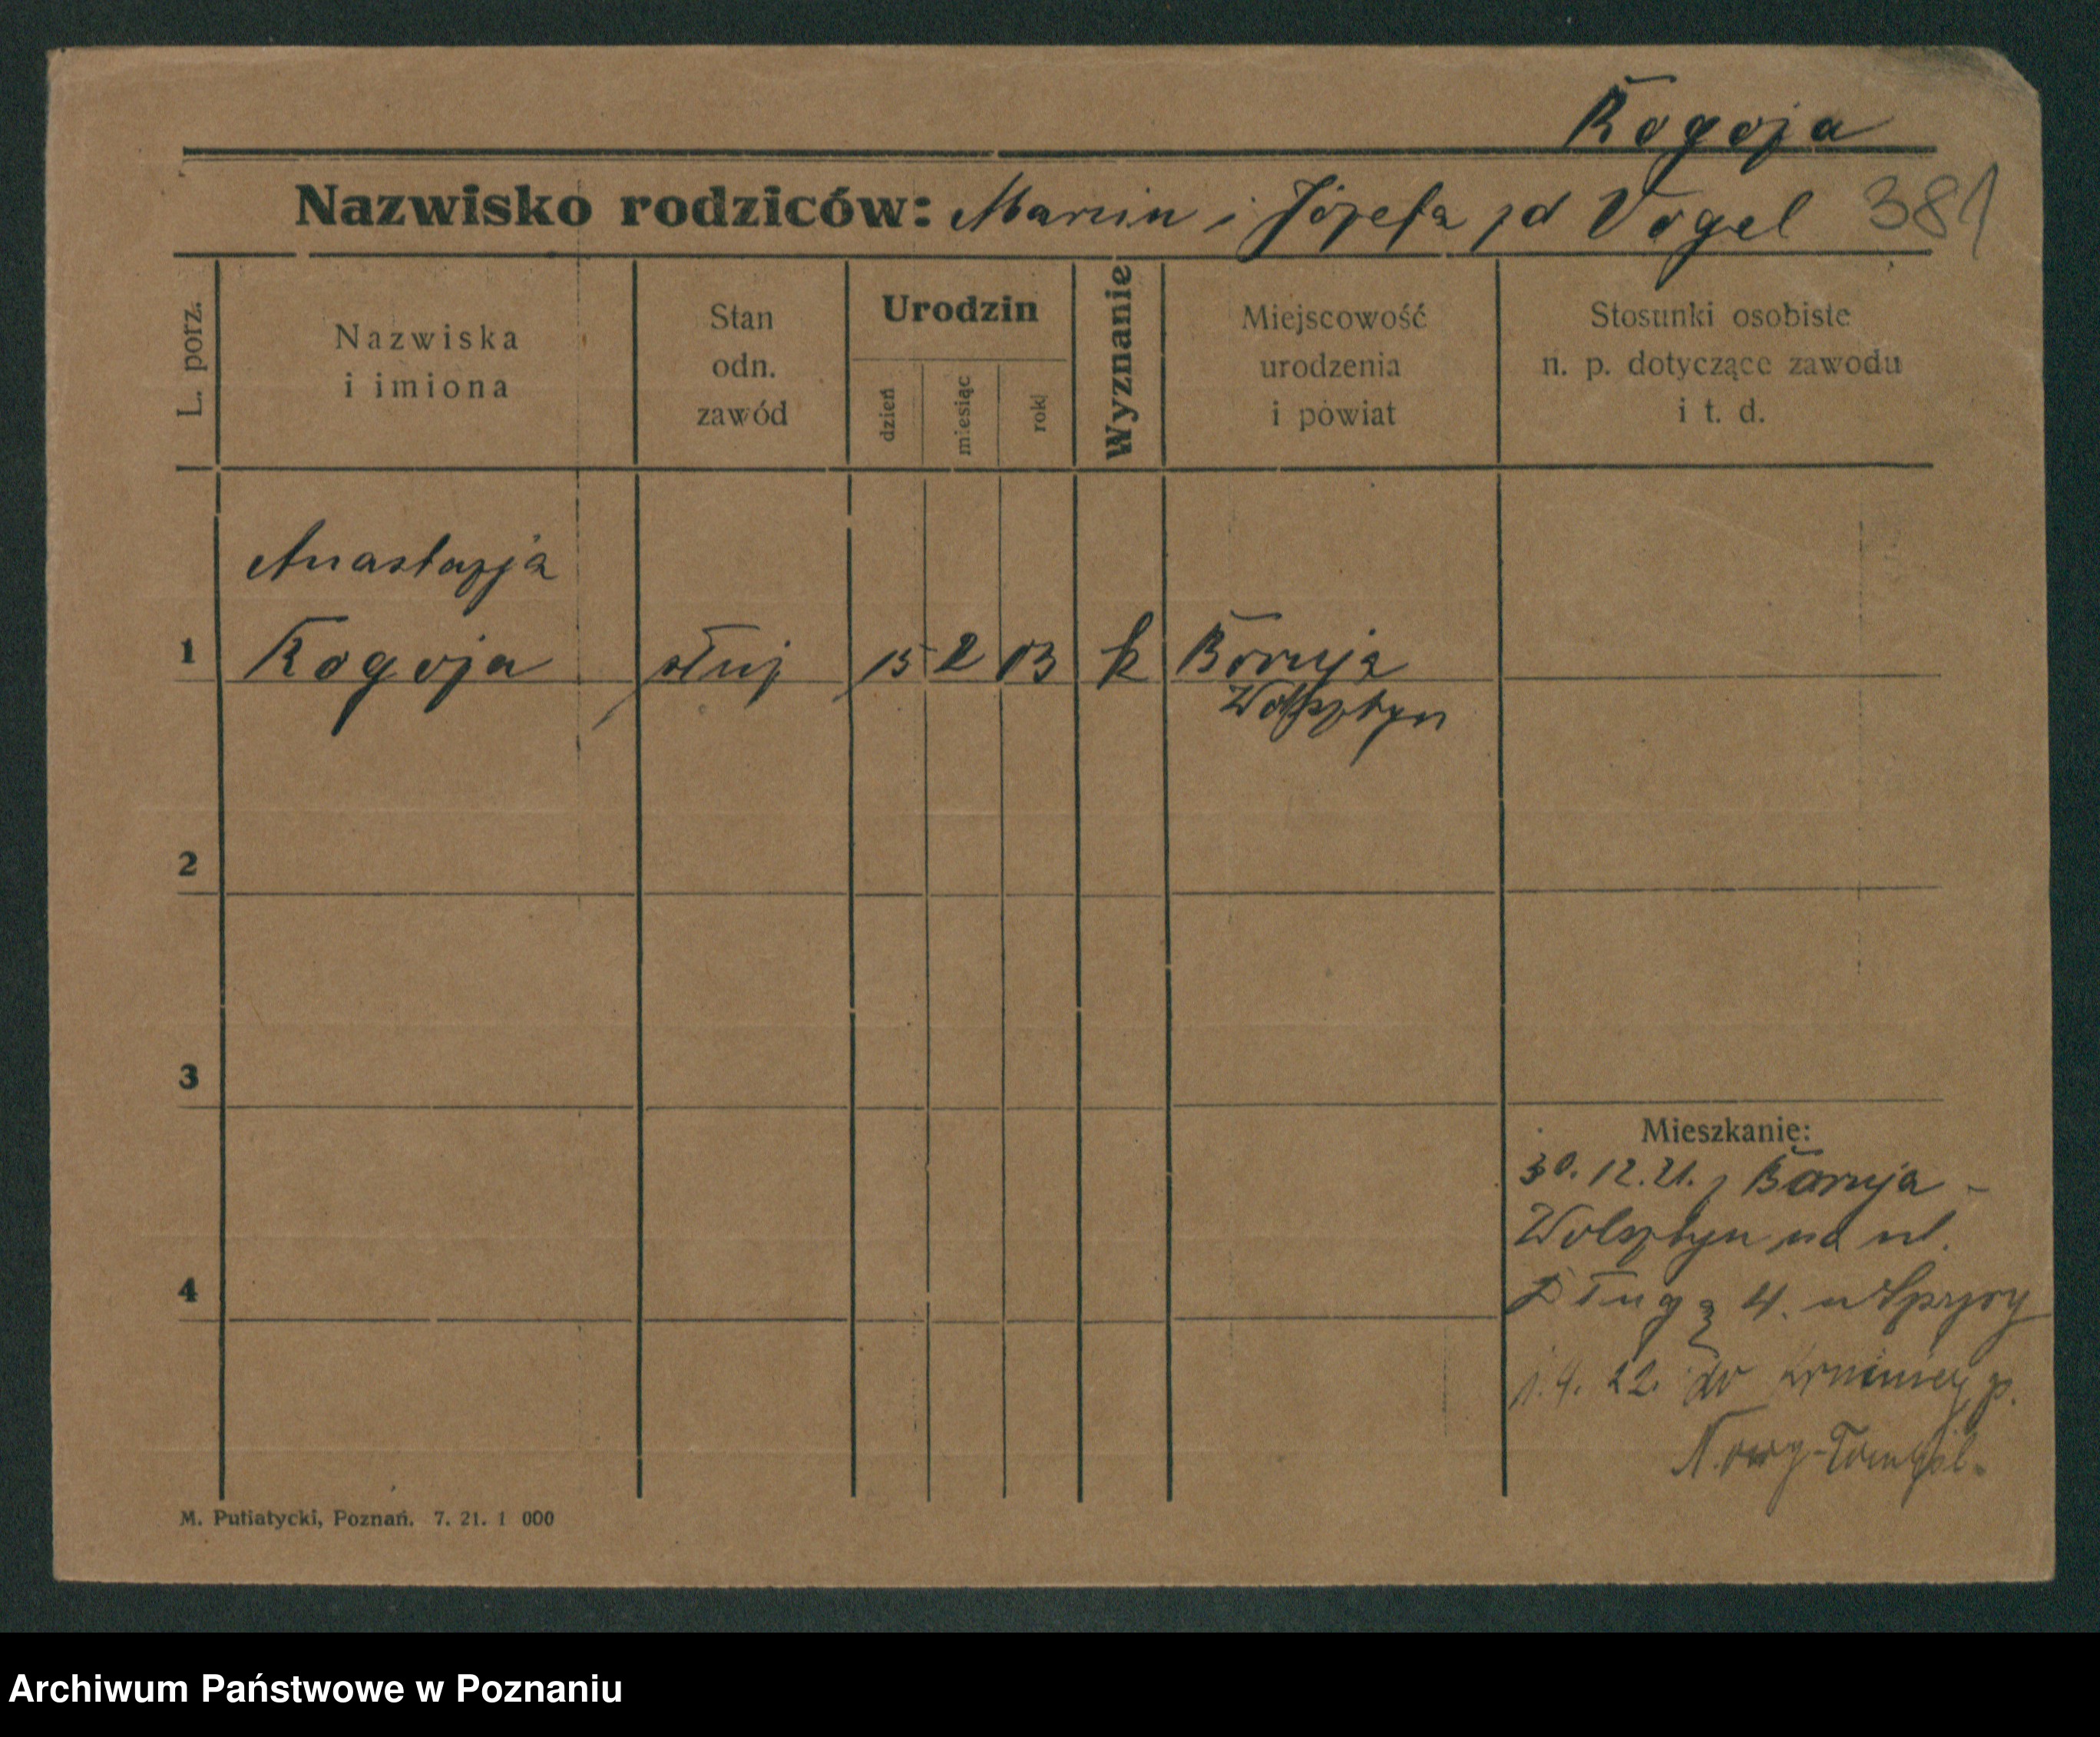 Rogoja
Nazwisko rodziców: Marcin i Józefa zd Vogel 381
L. porz.
Nazwiska
i imiona
Stan
odn.
zawód
Urodzin
dzień
miesiąc
rok
Wyznanie
Miejscowość
urodzenia
i powiat
Stosunki osobiste
n. p. dotyczące zawodu
i t. d.
Anastazja
1 Rogoja służ 15 2 03 k Boruja
Wolsztyn
2
3
Mieszkanie:
30. 12. 21. z Boruja -
Wolsztyn na ul.
4
Długą 4. u
1. 4. 22. do p.
N. owy-Tomyśl.
M. Putiatycki, Poznań. 7. 21. 1 000
Archiwum Państwowe w Poznaniu